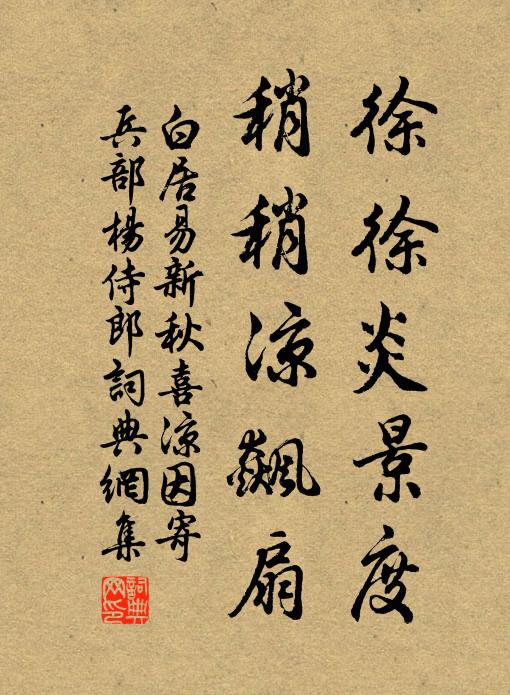 徐徐炎景度
稍稍凉飆扇
白居易新秋喜凉因寄
兵部楊侍郎詞典網集
詞典网印